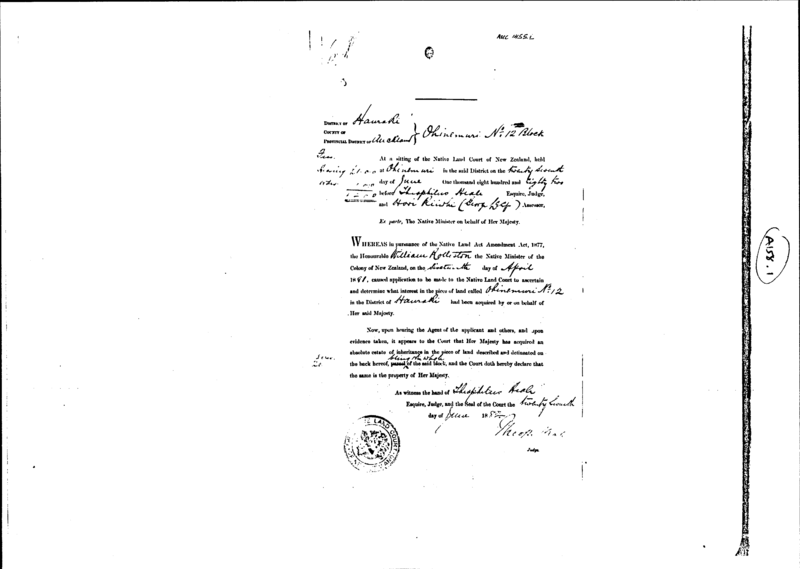 AUC 1455.L
DISTRICT OF Hauraki
COUNTY OF
PROVINCIAL DISTRICT OF Auckland
Ohinemuri No. 12 Block
Fees.
At a sitting of the Native Land Court of New Zealand, held
Hearing at Ohinemuri in the said District on the twenty seventh
Order day of June One thousand eight hundred and eighty two
before Theophilus Heale Esquire, Judge,
and Hori Assessor,
Ex parte, The Native Minister on behalf of Her Majesty.
WHEREAS in pursuance of the Native Land Act Amendment Act, 1877,
the Honourable William Rolleston the Native Minister of the
Colony of New Zealand, on the day of April
1881, caused application to be made to the Native Land Court to ascertain
and determine what interest in the piece of land called Ohinemuri No. 12
in the District of Hauraki had been acquired by or on behalf of
Her said Majesty.
Now, upon hearing the Agent of the applicant and others, and upon
evidence taken, it appears to the Court that Her Majesty has acquired an
absolute estate of inheritance in the piece of land described and delineated on
being the whole
the back hereof, of the said block, and the Court doth hereby declare that
the same is the property of Her Majesty.
As witness the hand of Theophilus Heale
Esquire, Judge, and the Seal of the Court the twenty seventh
day of June 188
Judge.
LAND COURT
A158.1